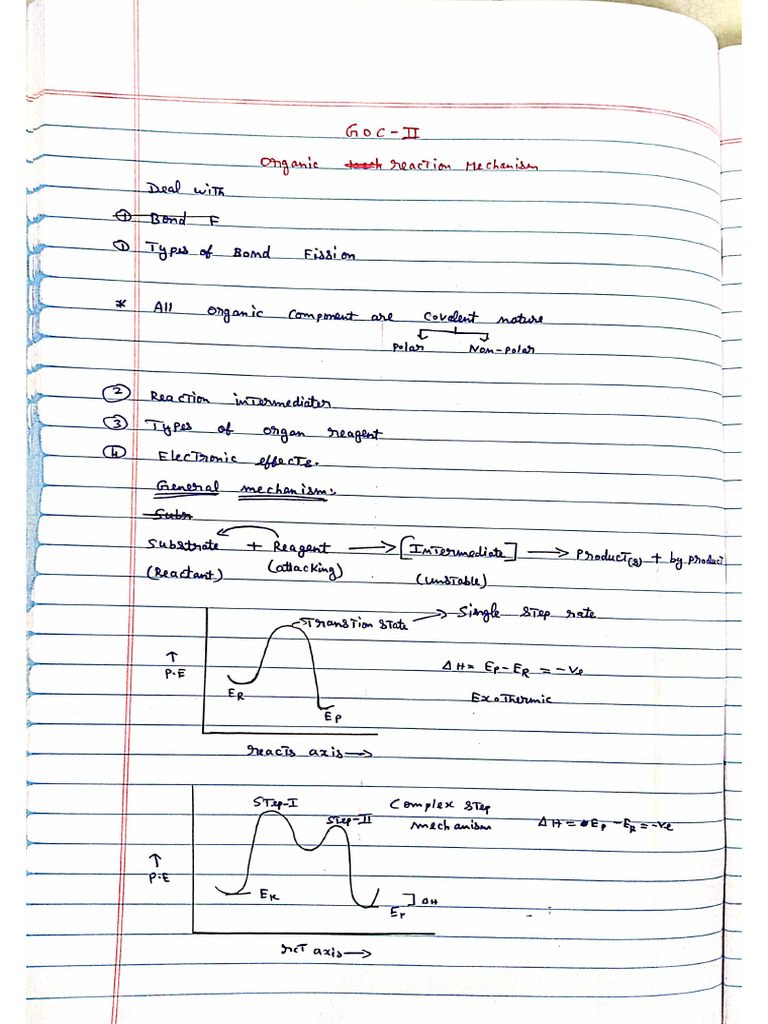 GOC-II
Organic reaction Mechanism
Deal with
① Bond F
① Types of Bond Fission
* All organic component are covalent nature
Polar Non-polar
② Reaction intermediates
③ Types of organ reagent
④ Electronic effects.
General mechanism:
Subs
Substrate + Reagent → [Intermediate] → Product(s) + by product
(Reactant) (attacking) (unstable)
Transtion state → Single step rate
↑
P.E
ΔH = EP - ER = -ve
ER
EP
Exothermic
reacts axis →
Step-I
Step-II
Complex step
mechanism
ΔH = EP - ER = -ve
↑
P.E
ER
EP
ΔH
rct axis →